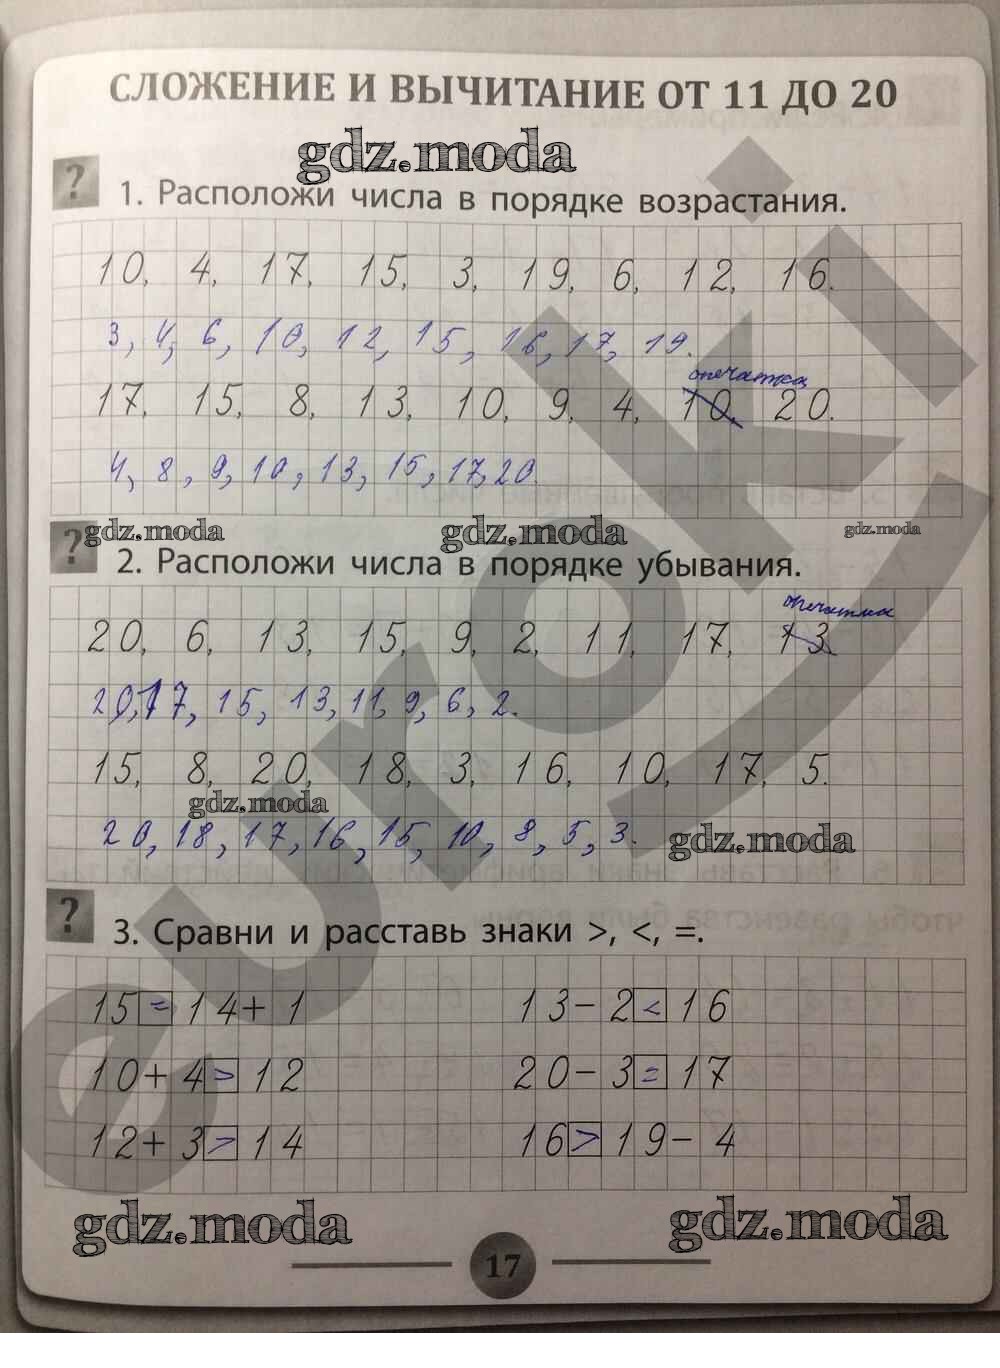 СЛОЖЕНИЕ И ВЫЧИТАНИЕ ОТ 11 ДО 20
gdz.moda
? 1. Расположи числа в порядке возрастания.
10, 4, 17, 15, 3, 19, 6, 12, 16.
3, 4, 6, 10, 12, 15, 16, 17, 19.
опечатка
17, 15, 8, 13, 10, 9, 4, 10, 20.
4, 8, 9, 10, 13, 15, 17, 20.
gdz.moda gdz.moda gdz.moda
? 2. Расположи числа в порядке убывания.
опечатка
20, 6, 13, 15, 9, 2, 11, 17, 13
20, 17, 15, 13, 11, 9, 6, 2.
15, 8, 20, 18, 3, 16, 10, 17, 5.
gdz.moda
20, 18, 17, 16, 15, 10, 8, 5, 3.
gdz.moda
? 3. Сравни и расставь знаки >, <, =.
15 = 14 + 1 13 - 2 < 16
10 + 4 > 12 20 - 3 = 17
12 + 3 > 14 16 > 19 - 4
gdz.moda gdz.moda
17
euroki